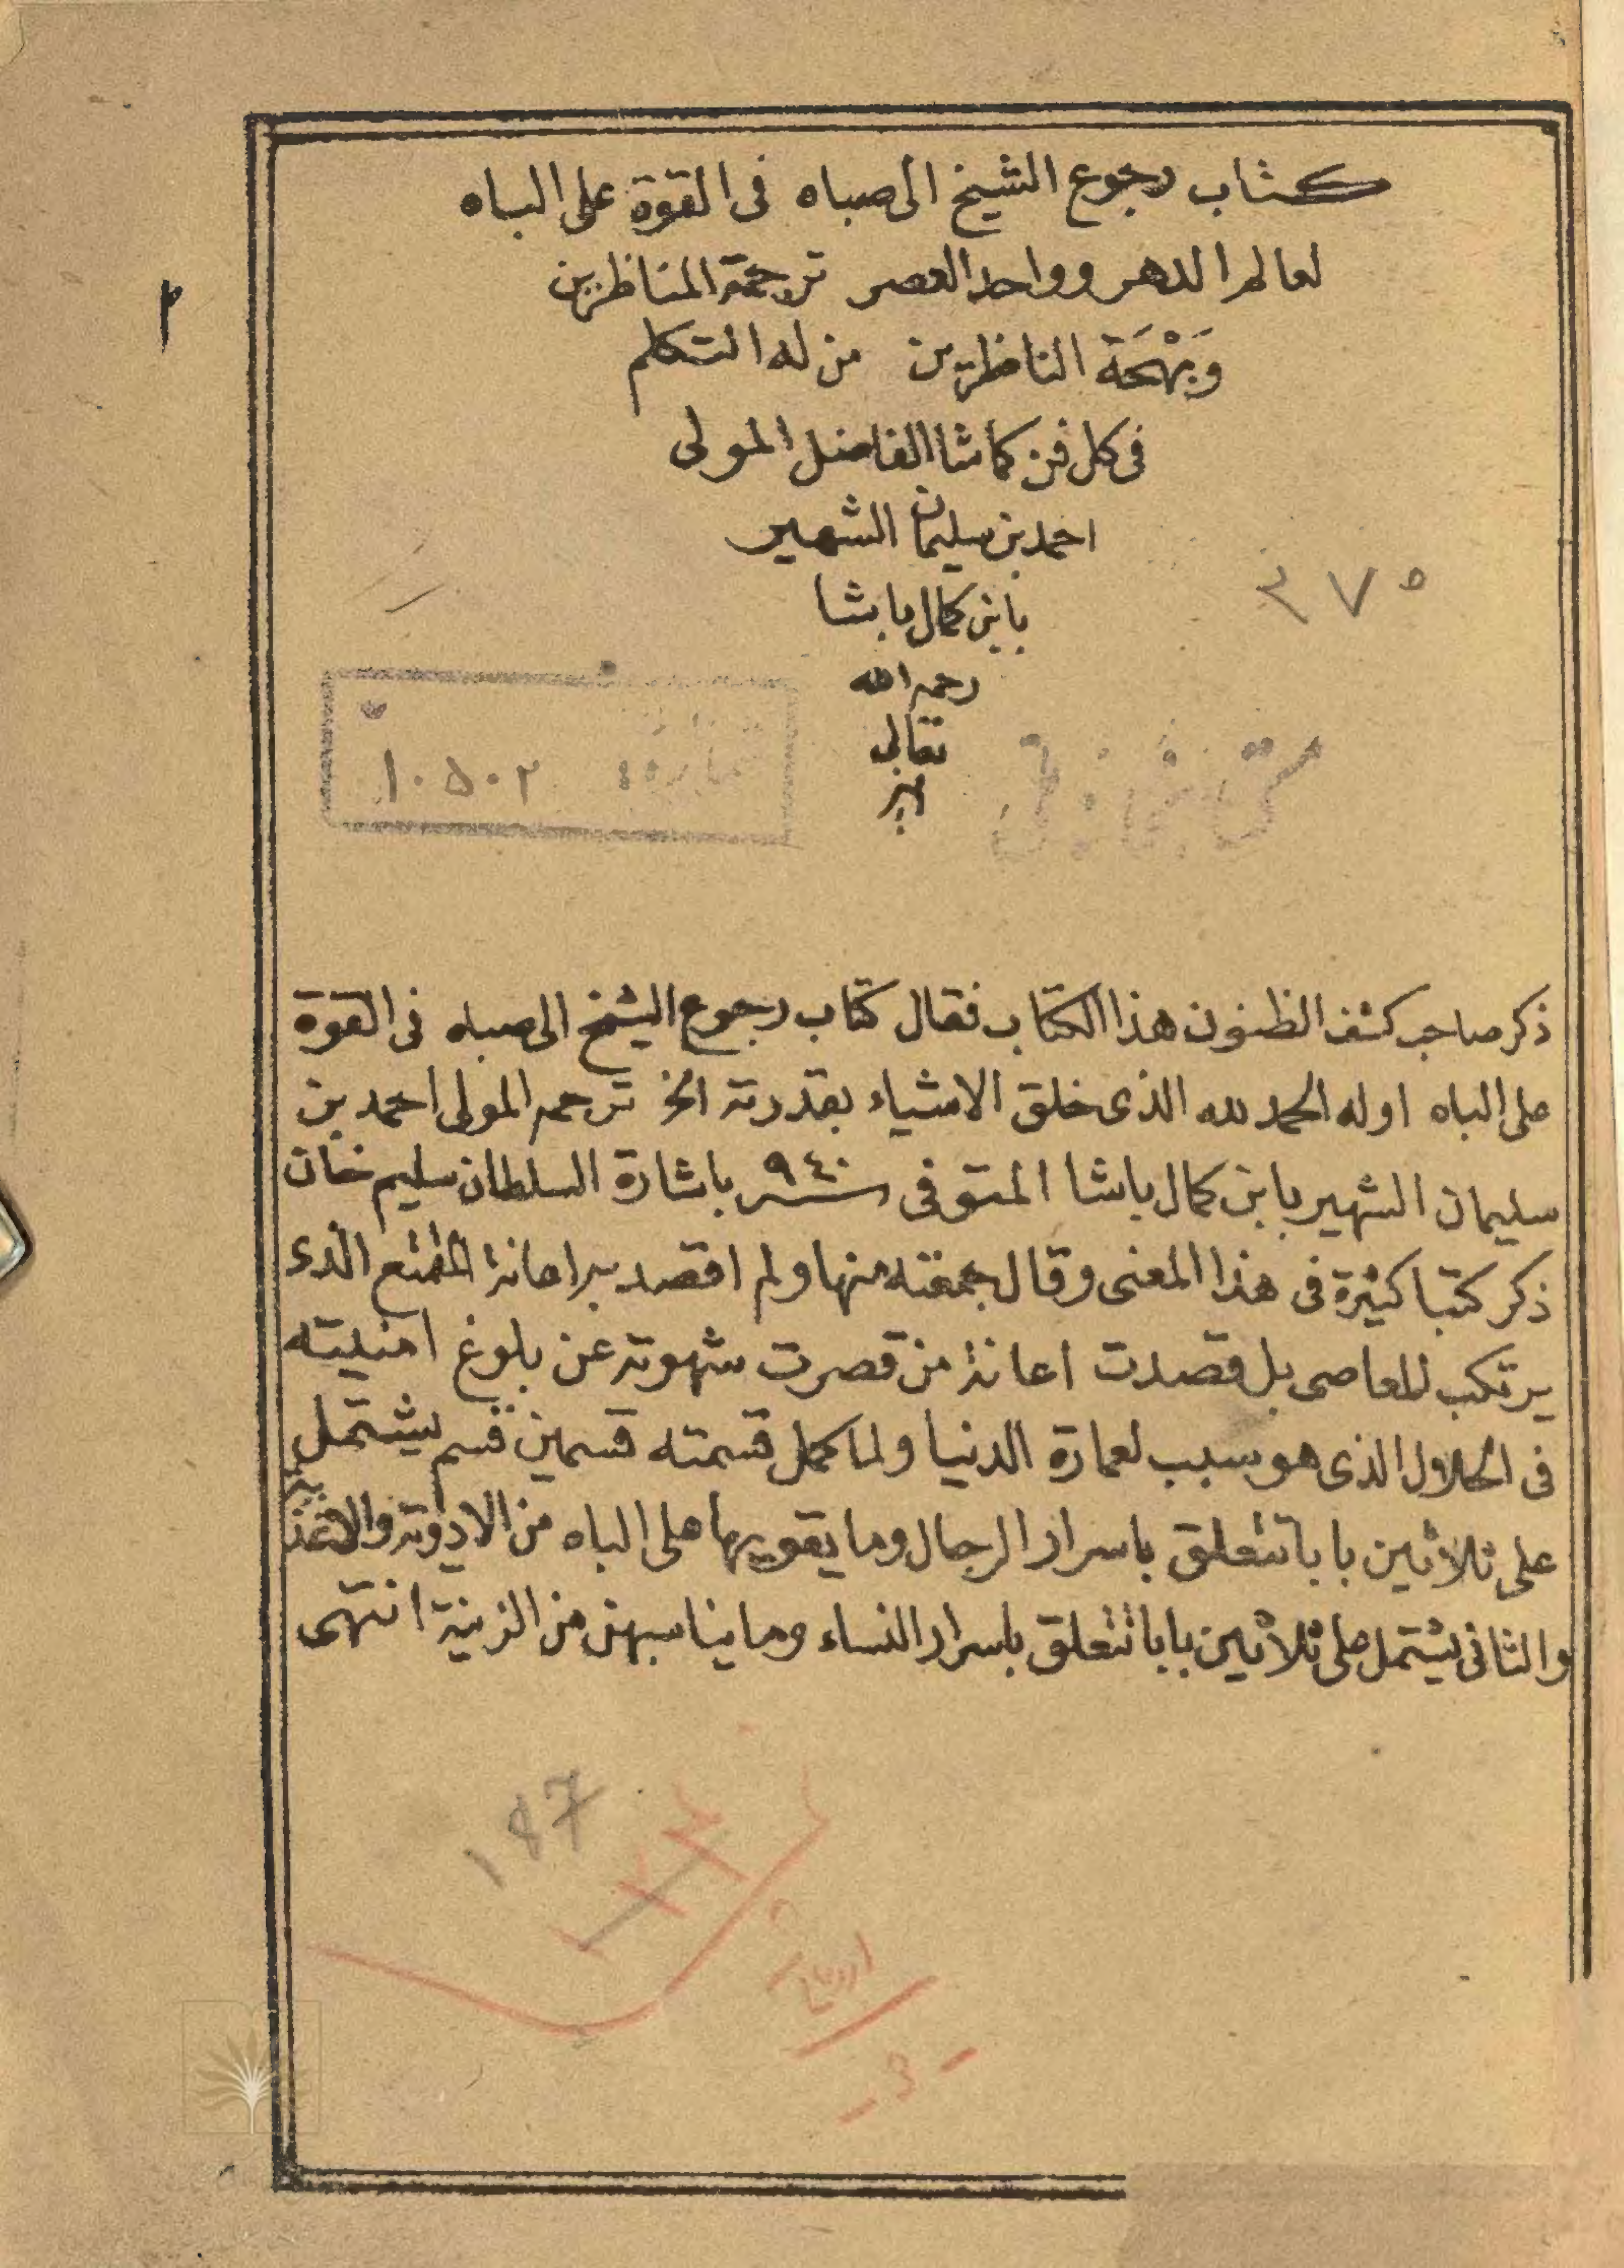 كتاب رجوع الشيخ الى صباه فى القوة على الباه
لعالم الدهر وواحد العصر ترجمة المناظرين
وَبَهْجَة الناظرين من له التكلم
فى كل فن كما شا الفاضل المولى
احمد بن سليمان الشهير
بابن كمال باشا
رحمه الله
تعالى
٢
٣٧٥
شماره
١٠٥٠٢
ذكر صاحب كشف الظنون هذا الكتاب فقال كتاب رجوع الشيخ الى صباه فى القوة
على الباه اوله الحمد لله الذى خلق الاشياء بقدرته الخ ترجمه المولى احمد بن
سليمان الشهير بابن كمال باشا المتوفى سنه ٩٤٠ باشارة السلطان سليم خان
ذكر كتبا كثيرة فى هذا المعنى وقال جمعته منها ولم اقصد به اعانة المتمتع الذى
يرتكب للمعاصى بل قصدت اعانة من قصرت شهوته عن بلوغ امنيته
فى الحلال الذى هو سبب لعمارة الدنيا ولما كمل قسمته قسمين قسم يشتمل
على ثلاثين بابا تتعلق باسرار الرجال وما يقويها على الباه من الادوية والاغذية
والثانى يشتمل على ثلاثين بابا تتعلق باسرار النساء وما يناسبهن من الزينة انتهى